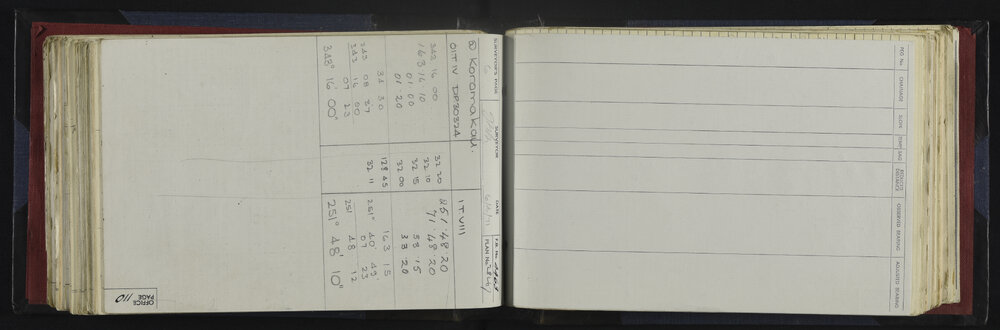 SURVEYOR'S PAGE 6 SURVEYOR DATE F.B. No.
PLAN No.
@ Koromakau.
OIT IV DP30324 IT VIII
343 16 00 32 20 251 · 48 · 20
163 16 10 32 10 71 · 48 · 20
01 00 32 15 58 15
01 20 32 00 38 20
34 30 128 45 163 15
343 08 37 32 11 251° 40' 49
16 00 07 23
343 07 23 251 48 12
343° 16' 00" 251° 48' 10"
OFFICE PAGE 110
PEG No. CHAINAGE SLOPE TEMP. SAG REDUCED DISTANCE OBSERVED BEARING ADJUSTED BEARING